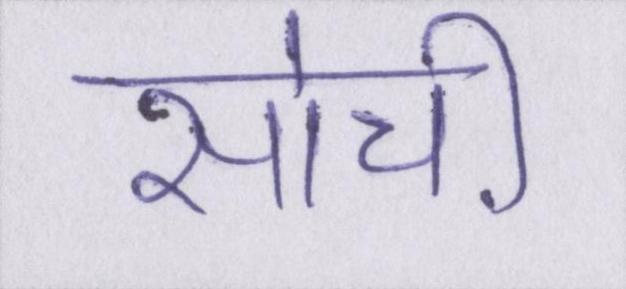 सोची